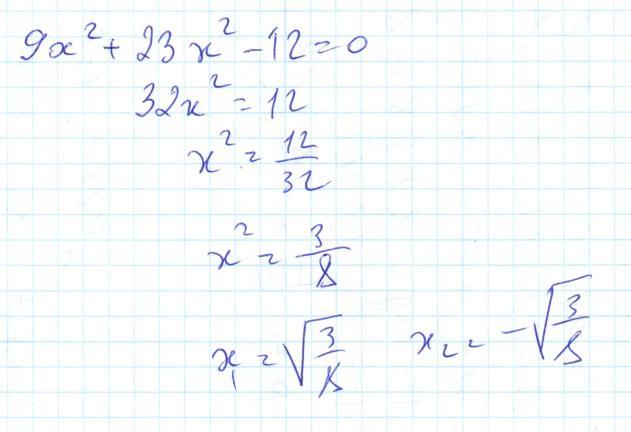 9x² + 23x² - 12 = 0
32x² = 12
x² = 12/32
x² = 3/8
x₁ = √(3/8) x₂ = -√(3/8)